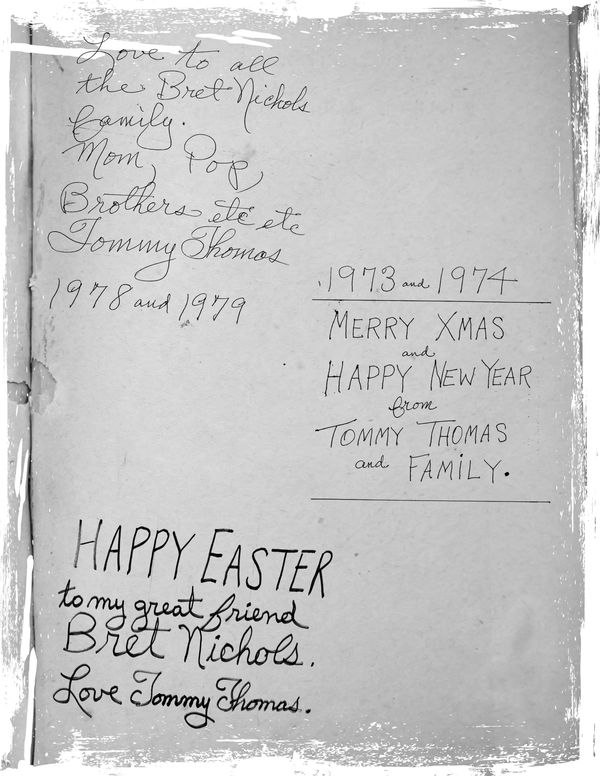 Love to all
the Bret Nichols
family.
Mom, Pop,
Brothers etc etc
Tommy Thomas
1978 and 1979
1973 and 1974
MERRY XMAS
and
HAPPY NEW YEAR
from
TOMMY THOMAS
and FAMILY.
HAPPY EASTER
to my great friend
Bret Nichols.
Love Tommy Thomas.